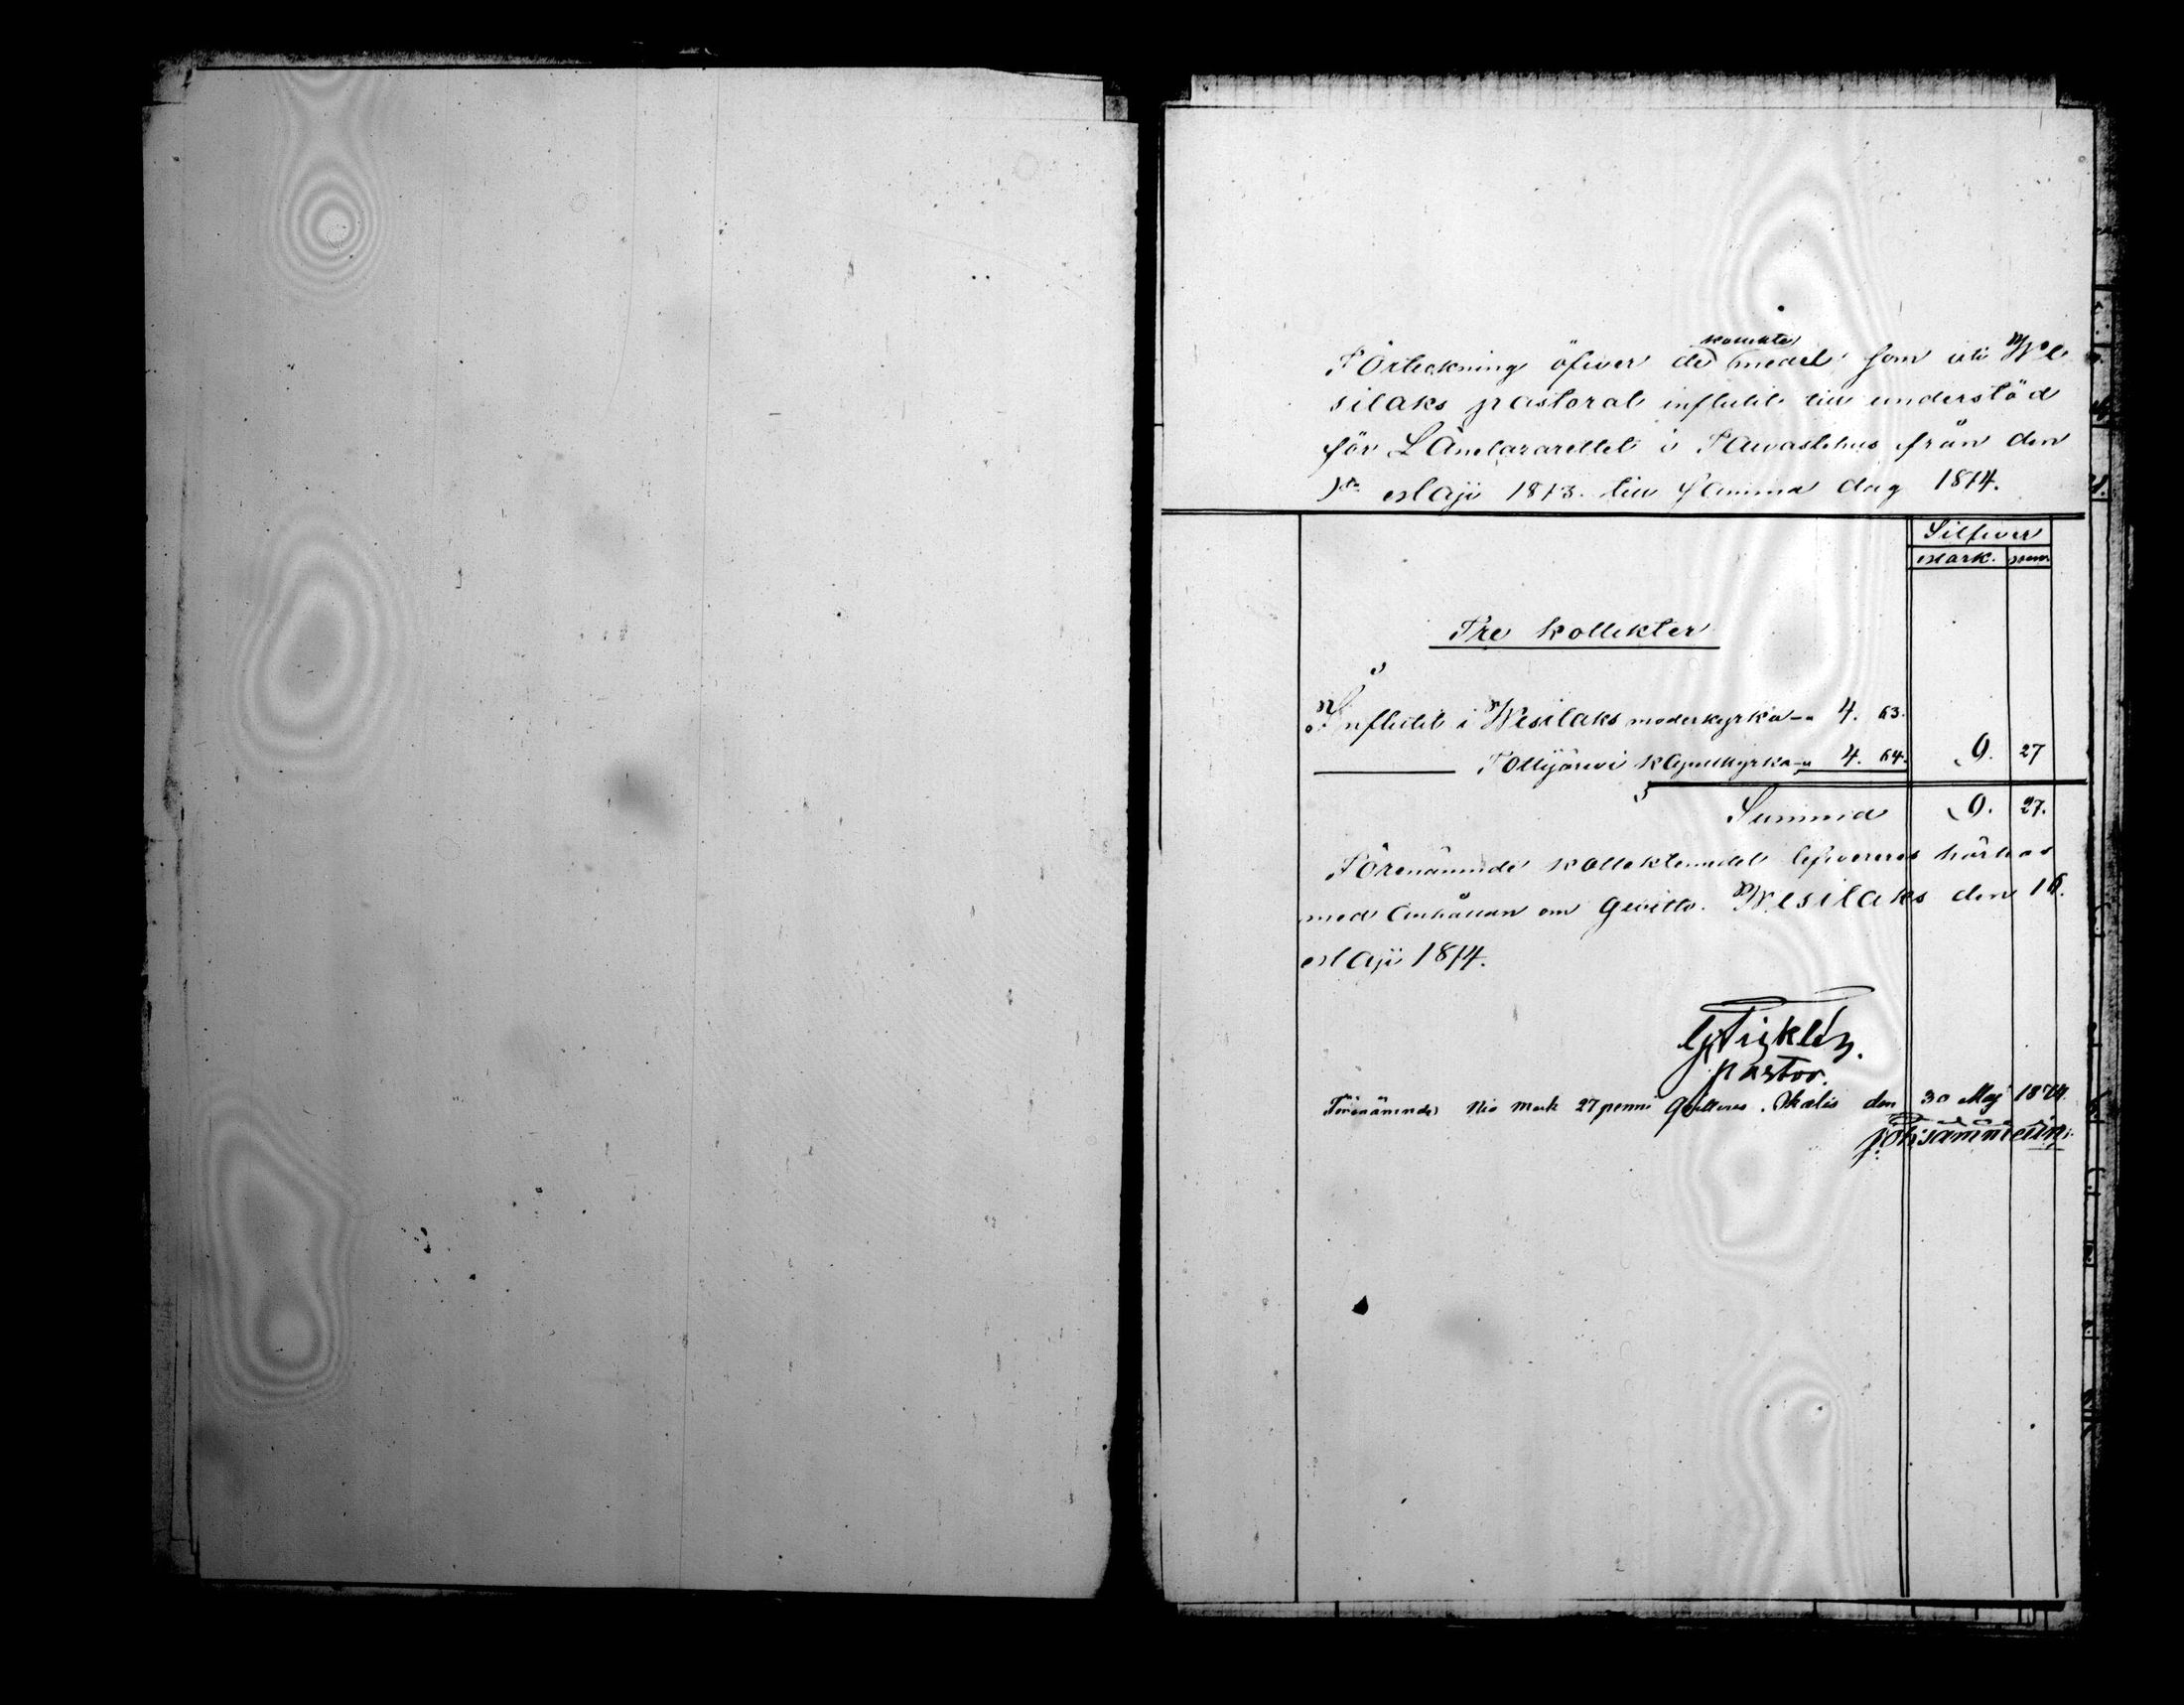 kollekt
Förteckning öfwer de medel som uti We
silaks pastorat influtit till understöd
för Länelazarettet i Tawastehus från den
1sta Maji 1873. till samma dag 1874.
Silfwer
Mark. penni
Tre kollekter
Influtit i Wesilaks moderkyrka 4. 63.
Tottijärwi kapellkyrka 4. 64. 9. 27
Summa 9. 27.
Förenämnde kollektmedel lefwereres härhos
med anhållan om qwitto. Wesilaks den 16.
Maji 1874.
Pastor.
Förenämnde Nio Mark 27 penni qvitteras. Ikalis den 30 Maj 1874.